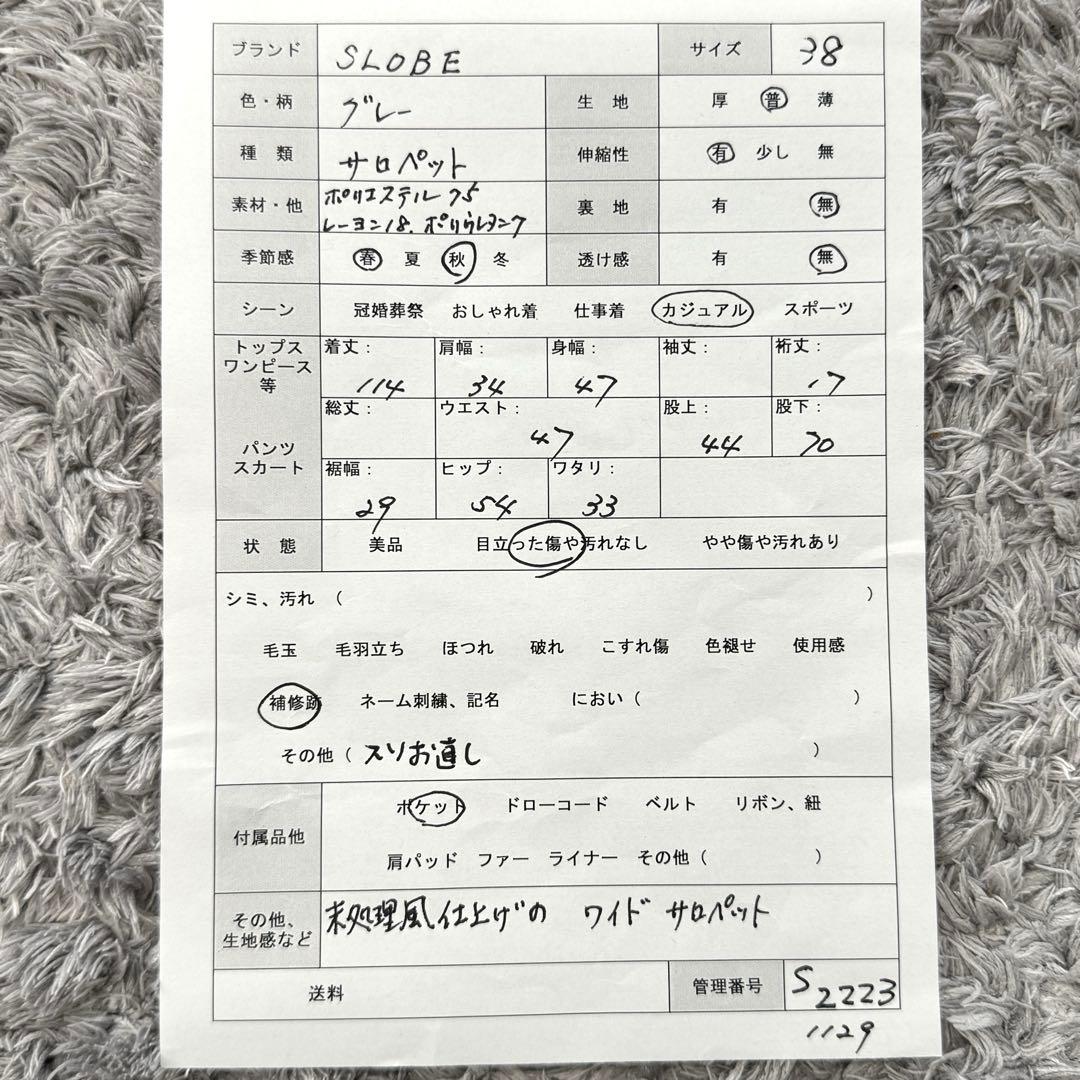 ブランド SLOBE サイズ 38
色・柄 グレー 生 地 厚 普 薄
種 類 サロペット 伸縮性 有 少し 無
素材・他 ポリエステル75 レーヨン18.ポリウレタン7 裏 地 有 無
季節感 春 夏 秋 冬 透け感 有 無
シーン 冠婚葬祭 おしゃれ着 仕事着 カジュアル スポーツ
トップス ワンピース 等 着丈: 114 肩幅: 34 身幅: 47 袖丈: 裄丈: 17
パンツ スカート 総丈: ウエスト: 47 股上: 44 股下: 70
裾幅: 29 ヒップ: 54 ワタリ: 33
状 態 美品 目立った傷や汚れなし やや傷や汚れあり
シミ、汚れ ( )
毛玉 毛羽立ち ほつれ 破れ こすれ傷 色褪せ 使用感
補修跡 ネーム刺繍、記名 におい ( )
その他 ( スソお直し )
付属品他 ポケット ドローコード ベルト リボン、紐
肩パッド ファー ライナー その他 ( )
その他、生地感など 未処理風仕上げの ワイド サロペット
送料 管理番号 S2223
1129